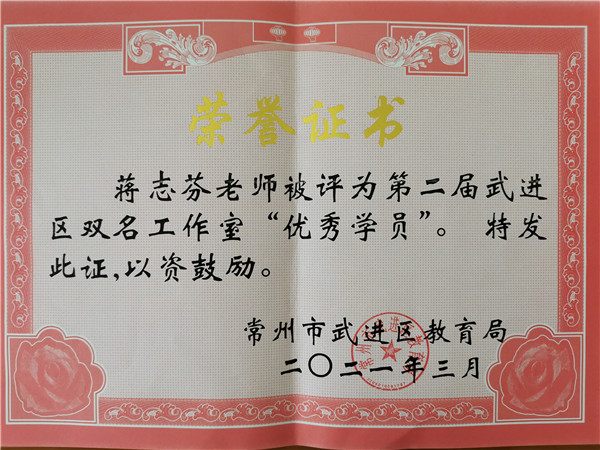 荣誉证书
蒋志芬老师被评为第二届武进
区双名工作室“优秀学员”。 特发
此证,以资鼓励。
常州市武进区教育局
二〇二一年三月